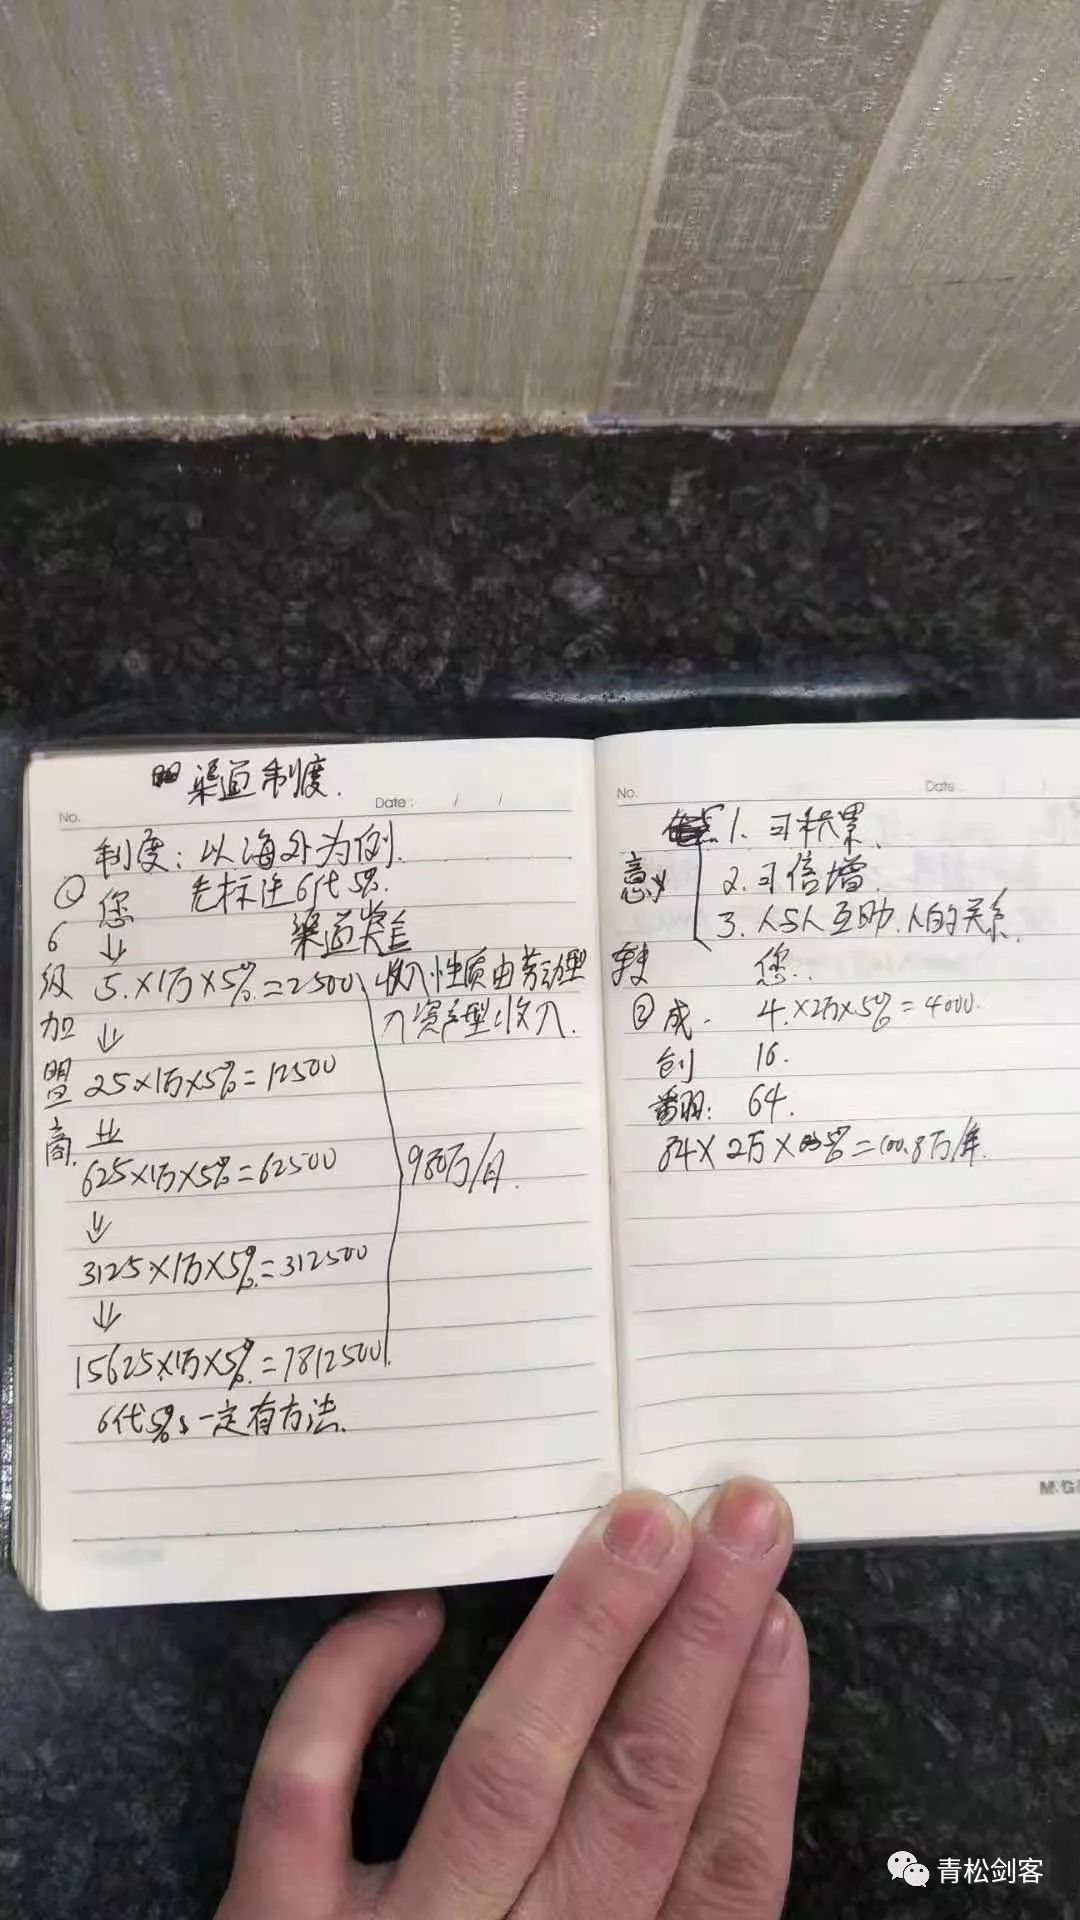 渠道制度.
No.
Date: / /
制度:以海外为例.
① 您 先标注6代5%.
渠道奖金
6级加盟商.
5.×1万×5%=2500
收入性质由劳动型
入资产型收入.
25.×1万×5%=12500
625×1万×5%=62500
980万/月.
3125.×1万×5%=312500
15625×1万×5%=7812500
6代5% 一定有方法.
No.
Date
意义
1. 可积累.
2. 可倍增.
3. 人与人互助.人的关系.
您.
② 成. 4.×2万×5%=4000.
创 16.
翻: 64.
84×2万×5%=100.8万/年.
M&G
青松剑客